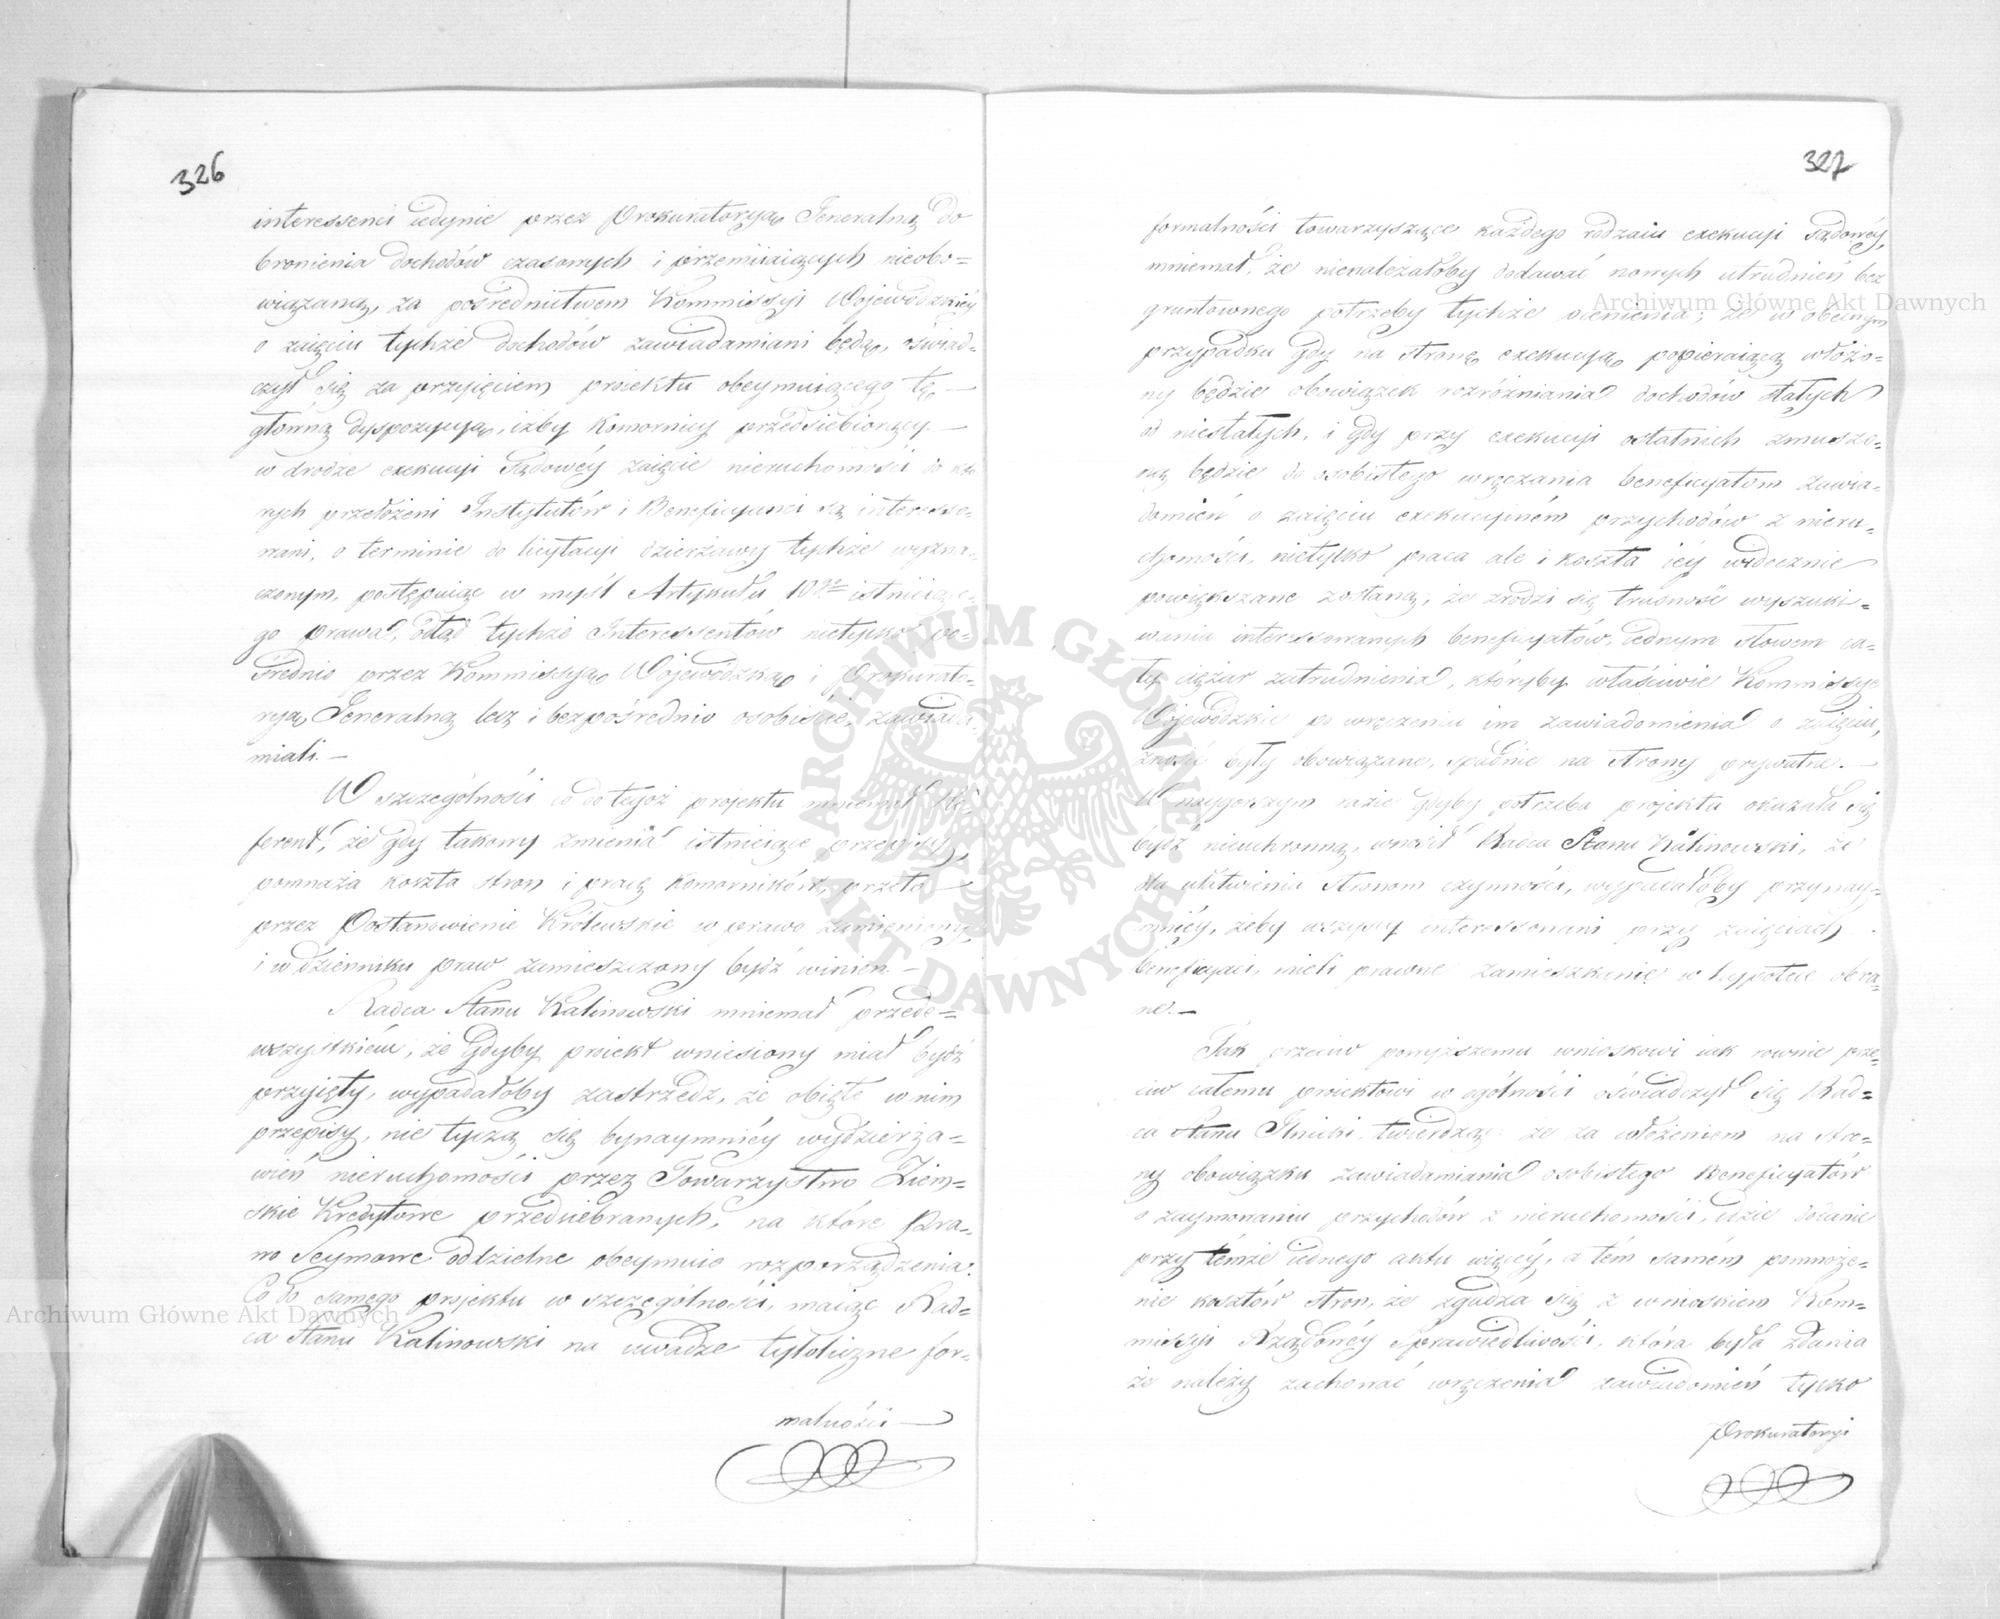 326
interessenci iedynie przez Prokuratoryą Jeneralną do
bronienia dochodów czasowych i przemiiaiących nieobo=
wiązaną, za pośrednictwem Kommissyi Woiewódzkiéy
o zaięciu tychże dochodów zawiadamiani będą, oświad=
czył się za przyięciem proiektu obeymuiącego tę
główną dyspozycyą, iżby Komornicy przedsiębiorący
w drodze exekucyi Sądowéy zaięcie nieruchomości do któ
rych przełożeni Instytutów i Beneficyanci są interesso=
wani, o terminie do licytacyi dzierżawy tychże wyzna=
czonym, postępuiąc w myśl Artykułu 10go istnieiące=
go prawa, odtąd tychże Interessentów nietylko po=
średnio przez Kommissyą Woiewódzką i Prokurato=
ryą Jeneralną lecz i bezpośrednio osobiście zawiada
miali. —
W szczególności co do tegoż projektu mniemał Re=
ferent, że gdy takowy zmienia istnieiące przepisy,
pomnaża koszta stron i pracę Komorników, przeto
przez Postanowienie Królewskie w prawo zamieniony
i w dzienniku praw zamieszczony bydź winien. —
Radca Stanu Kalinowski mniemał przede=
wszystkiém, że gdyby proiekt wniesiony miał bydź
przyięty, wypadałoby zastrzedz, że obięte w nim
przepisy, nie tyczą się bynaymniéy wydzierża=
wień nieruchomości przez Towarzystwo Ziem=
skie Kredytowe przedsiebranych, na które Pra=
wo Seymowe oddzielne obeymuie rozporządzenia.
Co do samego projektu w szczególności, maiąc Rad=
ca Stanu Kalinowski na uwadze tyloliczne for=
malności
327
formalności towarzyszące każdego rodzaiu exekucyi Sądowéy,
mniemał, że nienależałoby dodawać nowych utrudnień bez
gruntownego potrzeby tychże ocenienia; że w obecnym
przypadku gdy na stronę exekucyą popieraiącą włożo=
ny będzie obowiązek rozróżniania dochodów stałych
od niestałych, i gdy przy exekucyi ostatnich zmuszo=
ną będzie do osobistego wręczania beneficyatom zawia=
domień o zaięciu exekucyiném przychodów z nieru=
chomości, nietylko praca ale i koszta iéy widocznie
powiększane zostaną; że zrodzi się trudność wyszuki=
wania interessowanych beneficyatów, iednym słowem ca=
ły ciężar zatrudnienia, któryby właściwie Kommissye
Woiewódzkie po wręczeniu im zawiadomienia o zaięciu,
znosić były obowiązane, spadnie na strony prywatne. —
W naygorszym razie gdyby potrzeba projektu okazała się
bydź nieuchronną, wnosił Radca Stanu Kalinowski, że
dla ułatwienia stronom czynności, wypadałoby przynay=
mniéy, żeby wszyscy interessowani przy zaięciach
beneficyaci, mieli prawne zamieszkanie w hypotece obra=
ne. —
Tak przeciw powyższemu wnioskowi iak rownie prze=
ciw całemu proiektowi w ogólności oświadczył się Rad=
ca Stanu Ilnicki, twierdząc: że za włożeniem na stro=
ny obowiązku zawiadamiania osobistego Beneficyatów
o zaymowaniu przychodów z nieruchomości, idzie dodanie
przy témże iednego aktu więcéy, a tém samém pomnoże=
nie kosztów stron, że zgadza się z wnioskiem Kom=
missyi Rządowéy Sprawiedliwości, która była zdania
że należy zachować wręczenia zawiadomień tylko
Prokuratoryi